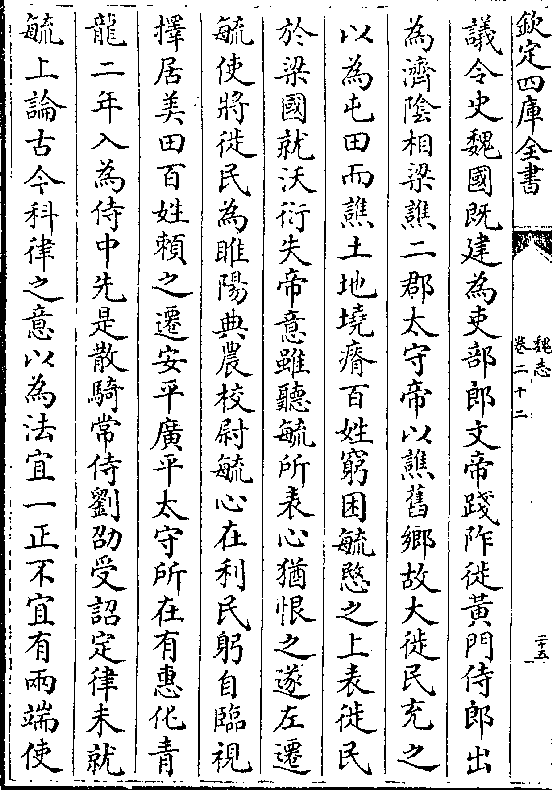 欽定四庫全書
魏志
卷二十二
二十五
議令史魏國既建為吏部郎文帝踐阼徙黃門侍郎出
為濟陰相梁譙二郡太守帝以譙舊鄉故大徙民充之
以為屯田而譙土地墝瘠百姓窮困毓愍之上表徙民
於梁國就沃衍失帝意雖聽毓所表心猶恨之遂左遷
毓使將徙民為睢陽典農校尉毓心在利民躬自臨視
擇居美田百姓賴之遷安平廣平太守所在有惠化青
龍二年入為侍中先是散騎常侍劉劭受詔定律未就
毓上論古今科律之意以為法宜一正不宜有兩端使